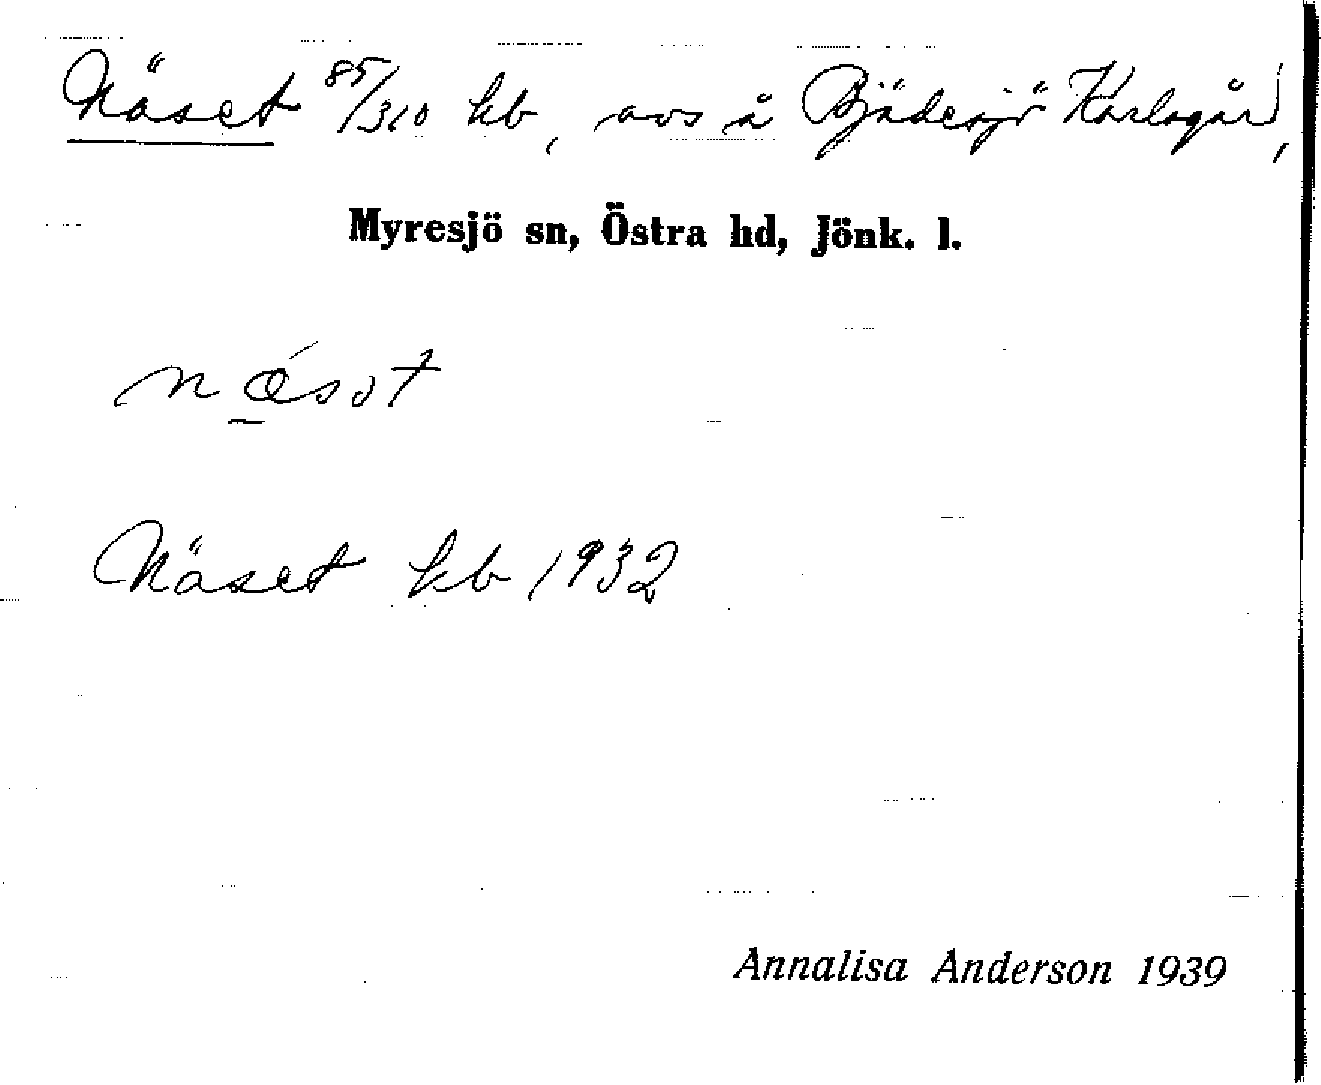 Näset 85/310 kb, avs å Bjädesjö Karlsgård,
Myresjö sn, Östra hd, Jönk. l.
Näset kb 1932
Annalisa Anderson 1939